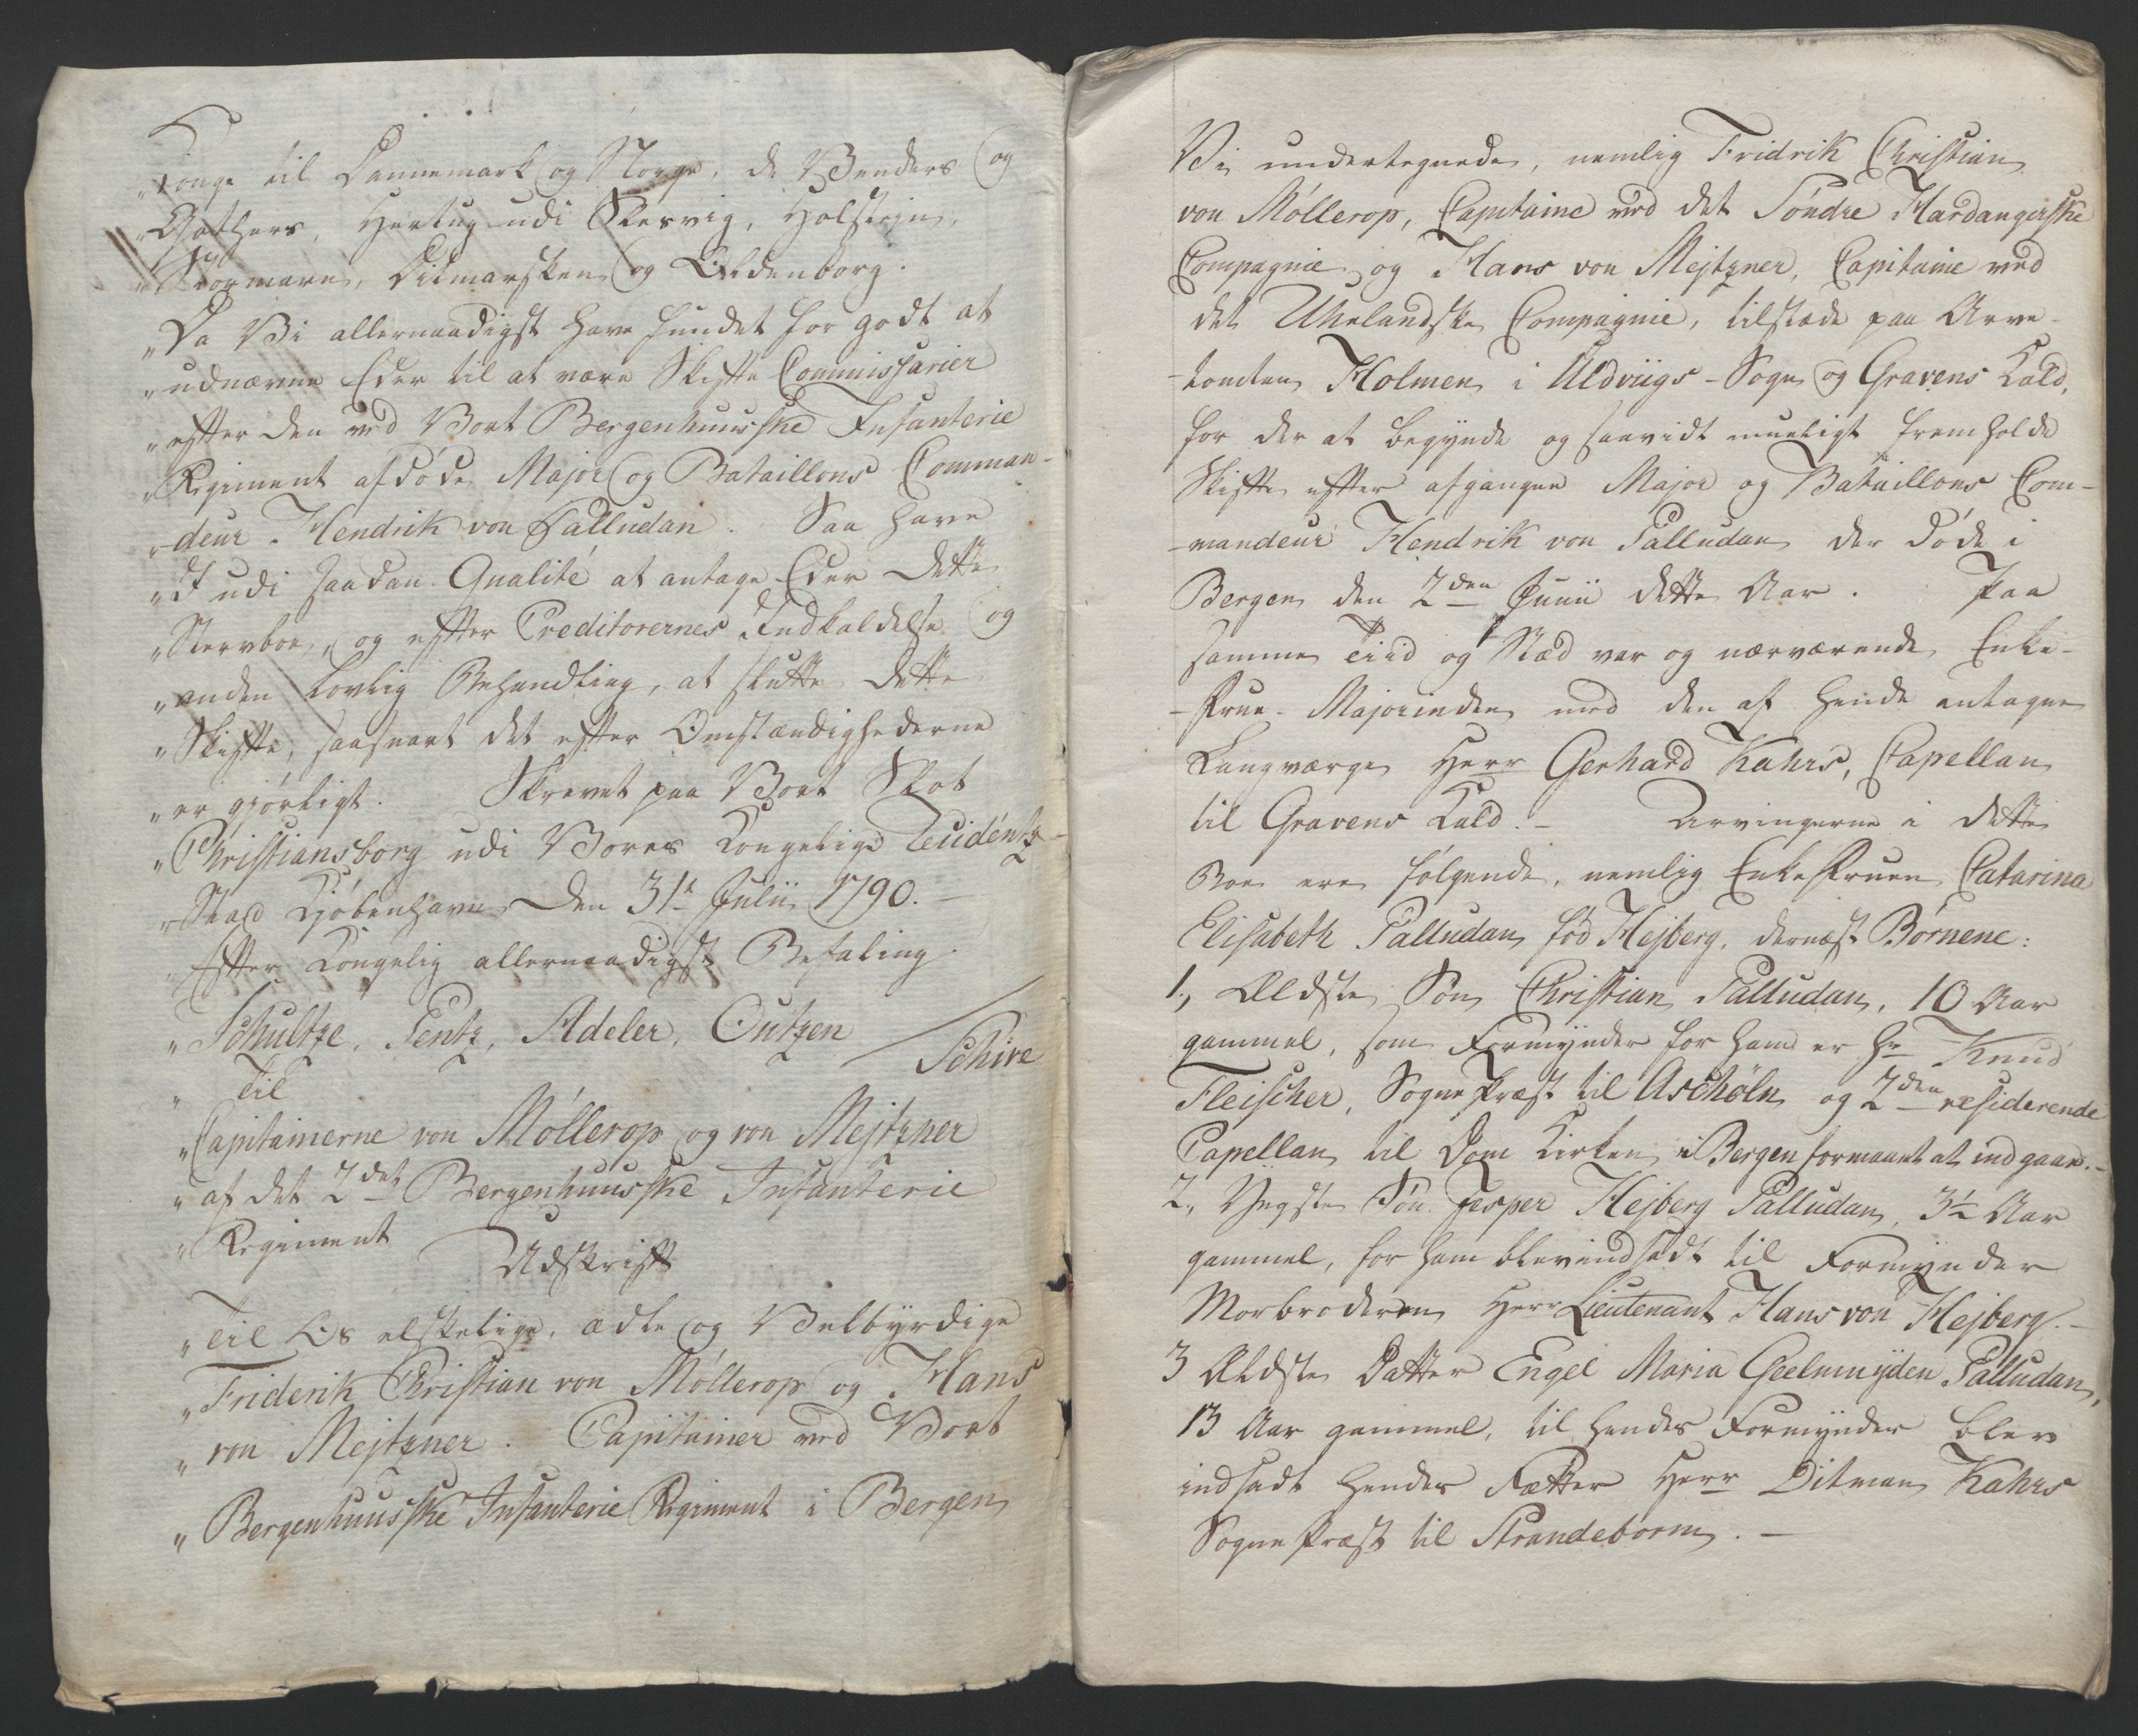 "Konge til Dannemark og Norge, de Venders og
"Gothers, Hertug udi Slesvig, Holsteen,
"Stormarn, Ditmarsken og Oldenborg.
"Da Vi allernaadigst have fundet for godt at
"udnævne Eder til at være Skifte Commissarier
"efter den ved Vort Bergenhuusske Infanterie
"Regiment afdøde Major og Bataillons Comman-
"deur Hendrik von Palludan. Saa have
"I udi saadan Qualité at antage Eder dette
"Stervboe, og efter Creditorernes Indkaldelse og
"anden Lovlig Behandling, at slutte dette
"Skifte, saasnart det efter Omstændighederne
"er gjørligt. Skrevet paa Vort Slot
"Christiansborg udi Vores Kongelige Residentz-
"Stad Kjøbenhavn den 31te Julii 1790.-
"Efter Kongelig allernaadigst Befaling.
"Schultze, Pentz, Adeler, Outzen
Schive
" Til
"Capitainerne von Møllerop og von Mejtzner
"af det 2det Bergenhuusske Infanterie
"Regiment
Udskrift
"Til Os elskelige, ædle og Velbyrdige
"Friderik Christian von Møllerop og Hans
"von Mejtzner. Capitainer ved Vort
"Bergenhuusske Infanterie Regiment i Bergen
Vi undertegnede, nemlig Fridrik Christian
von Møllerop, Capitaine ved det Søndre Hardangerske
Compagnie og Hans von Mejtzner, Capitaine ved
det Uhelandske Compagnie, tilstæde paa Arve-
-tomten Holmen i Uldviigs-Sogn og Gravens Kald,
for der at begynde og saavidt mueligt fremholde
Skifte efter afgangne Major og Bataillons Com-
-mandeur Hendrik von Palludan der døde i
Bergen den 2den Junii dette Aar. Paa
samme Tiid og Stæd var og nærværende Enke-
-Frue-Majorinden med den af hende antagne
Laugværge Herr Gerhard Kahrs, Capellan
til Gravens Kald.- Arvingerne i dette
Boe ere følgende, nemlig EnkeFruen Catarina
Elisabeth Palludan fød Hejberg, dernæst Børnene:
1., Ældste Søn Christian Palludan, 10 Aar
gammel, som Formynder for ham er Hr Knud
Fleischer, SognePræst til Aschöln og 2den residerende
Capellan til Dom Kirken i Bergen formaaet at indgaae.-
2., Yngste Søn Jesper Hejberg Palludan, 3½ Aar
gammel, for ham blev indsadt til Formynder
Morbroderen Herr Lieutenant Hans von Hejberg.-
3 Ældste Datter Engel Maria Geelmuyden Palludan,
13 Aar gammel, til hendes Formynder blev
indsadt hendes Fætter Herr Ditman Kahrs
SognePræst til Strandeborm.-